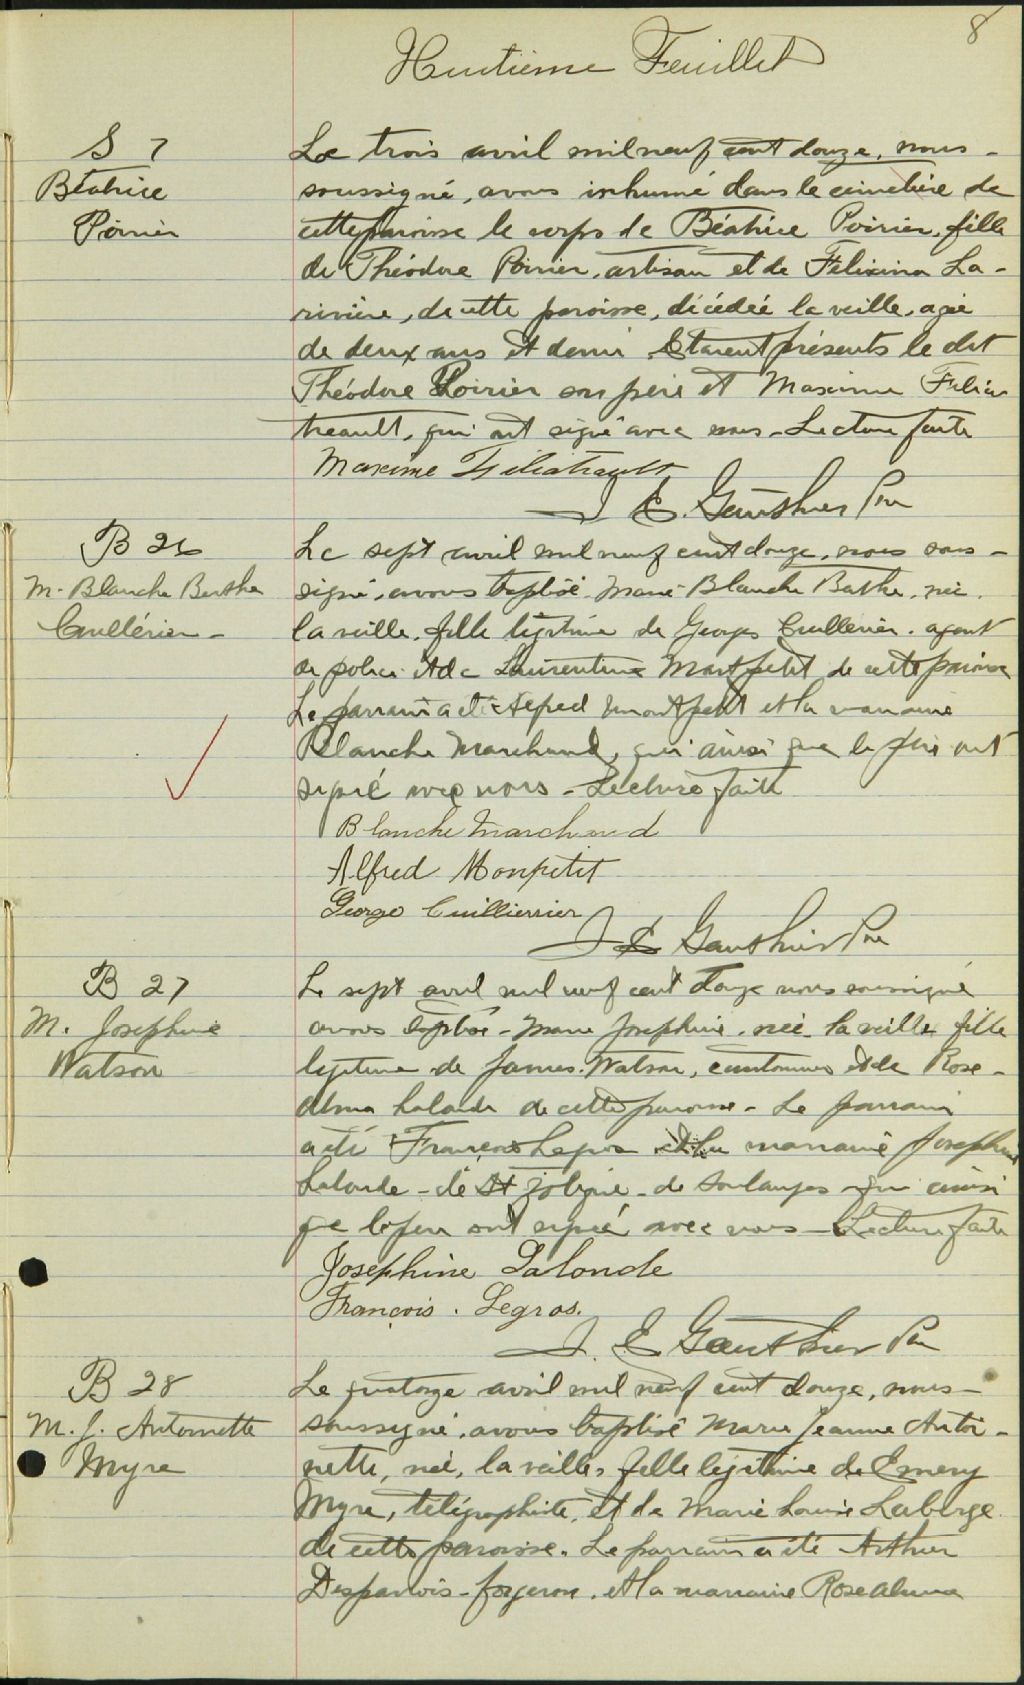 8
Huitième Feuillet
S 7
Béatrice
Poirier
Le trois avril mil neuf cent douze, nous -
soussigné, avons inhumé dans le cimetière de
cette paroisse le corps de Béatrice Poirier, fille
de Théodore Poirier, artisan et de Félixina La-
rivière, de cette paroisse, décédée la veille, agée
de deux ans et demi Etaient présents le dit
Théodore Poirier son père et Maxime Filia
treault, qui ont signé avec nous - Lecture faite
Maxime Filiatrault
J E. Gauthier Ptre
B 26
M. Blanche Berthe
Cuillérier -
Le sept avril mil neuf cent douze, nous sous -
signé, avons baptisé Marie Blanche Berthe, née
la veille, fille légitime de Georges Cuillérier, agent
de police et de Laurentine Montpetit de cette paroisse
Le parrain a été Alfred Montpetit et la marraine
Blanche Marchand, qui ainsi que le père ont
signé avec nous - Lecture faite
Blanche Marchand
Alfred Monpetit
George Cuillierrier
J E Gauthier Ptre
B 27
M. Josephine
Watson
Le sept avril mil neuf cent douze nous soussigné
avons baptisé - Marie Josephine, née la veille fille
legitime de James Watson, et de Rose -
alma Lalonde de cette paroisse - Le parrain
a été François Legros et la marraine Josephine
Lalonde - de St - de Soulanges qui ainsi
que le père ont signé avec nous - Lecture faite
Josephine Lalonde
François. Legros.
J. E Gauthier Ptre
B 28
M. J. Antoinette
Myre
Le quatorze avril mil neuf cent douze, nous -
soussigné, avons baptisé Marie Jeanne Antoi -
nette, née, la veille, fille légitime de Emery
Myre, télégraphiste, et de Marie Louise Laberge
de cette paroisse. Le parrain a été Arthur
Desparois - forgeron, et la marraine Rosealma